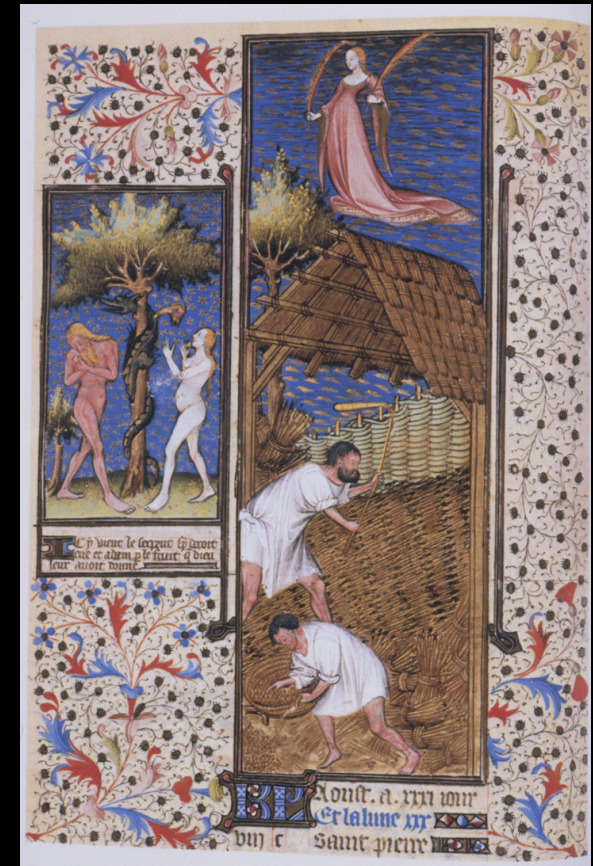 Cy vient le serpent
eue et adam p le fruit q dieu
leur auoit donne
KL Aoust. a. xxxi iour
Et la lune xxx
viii c Saint pierre